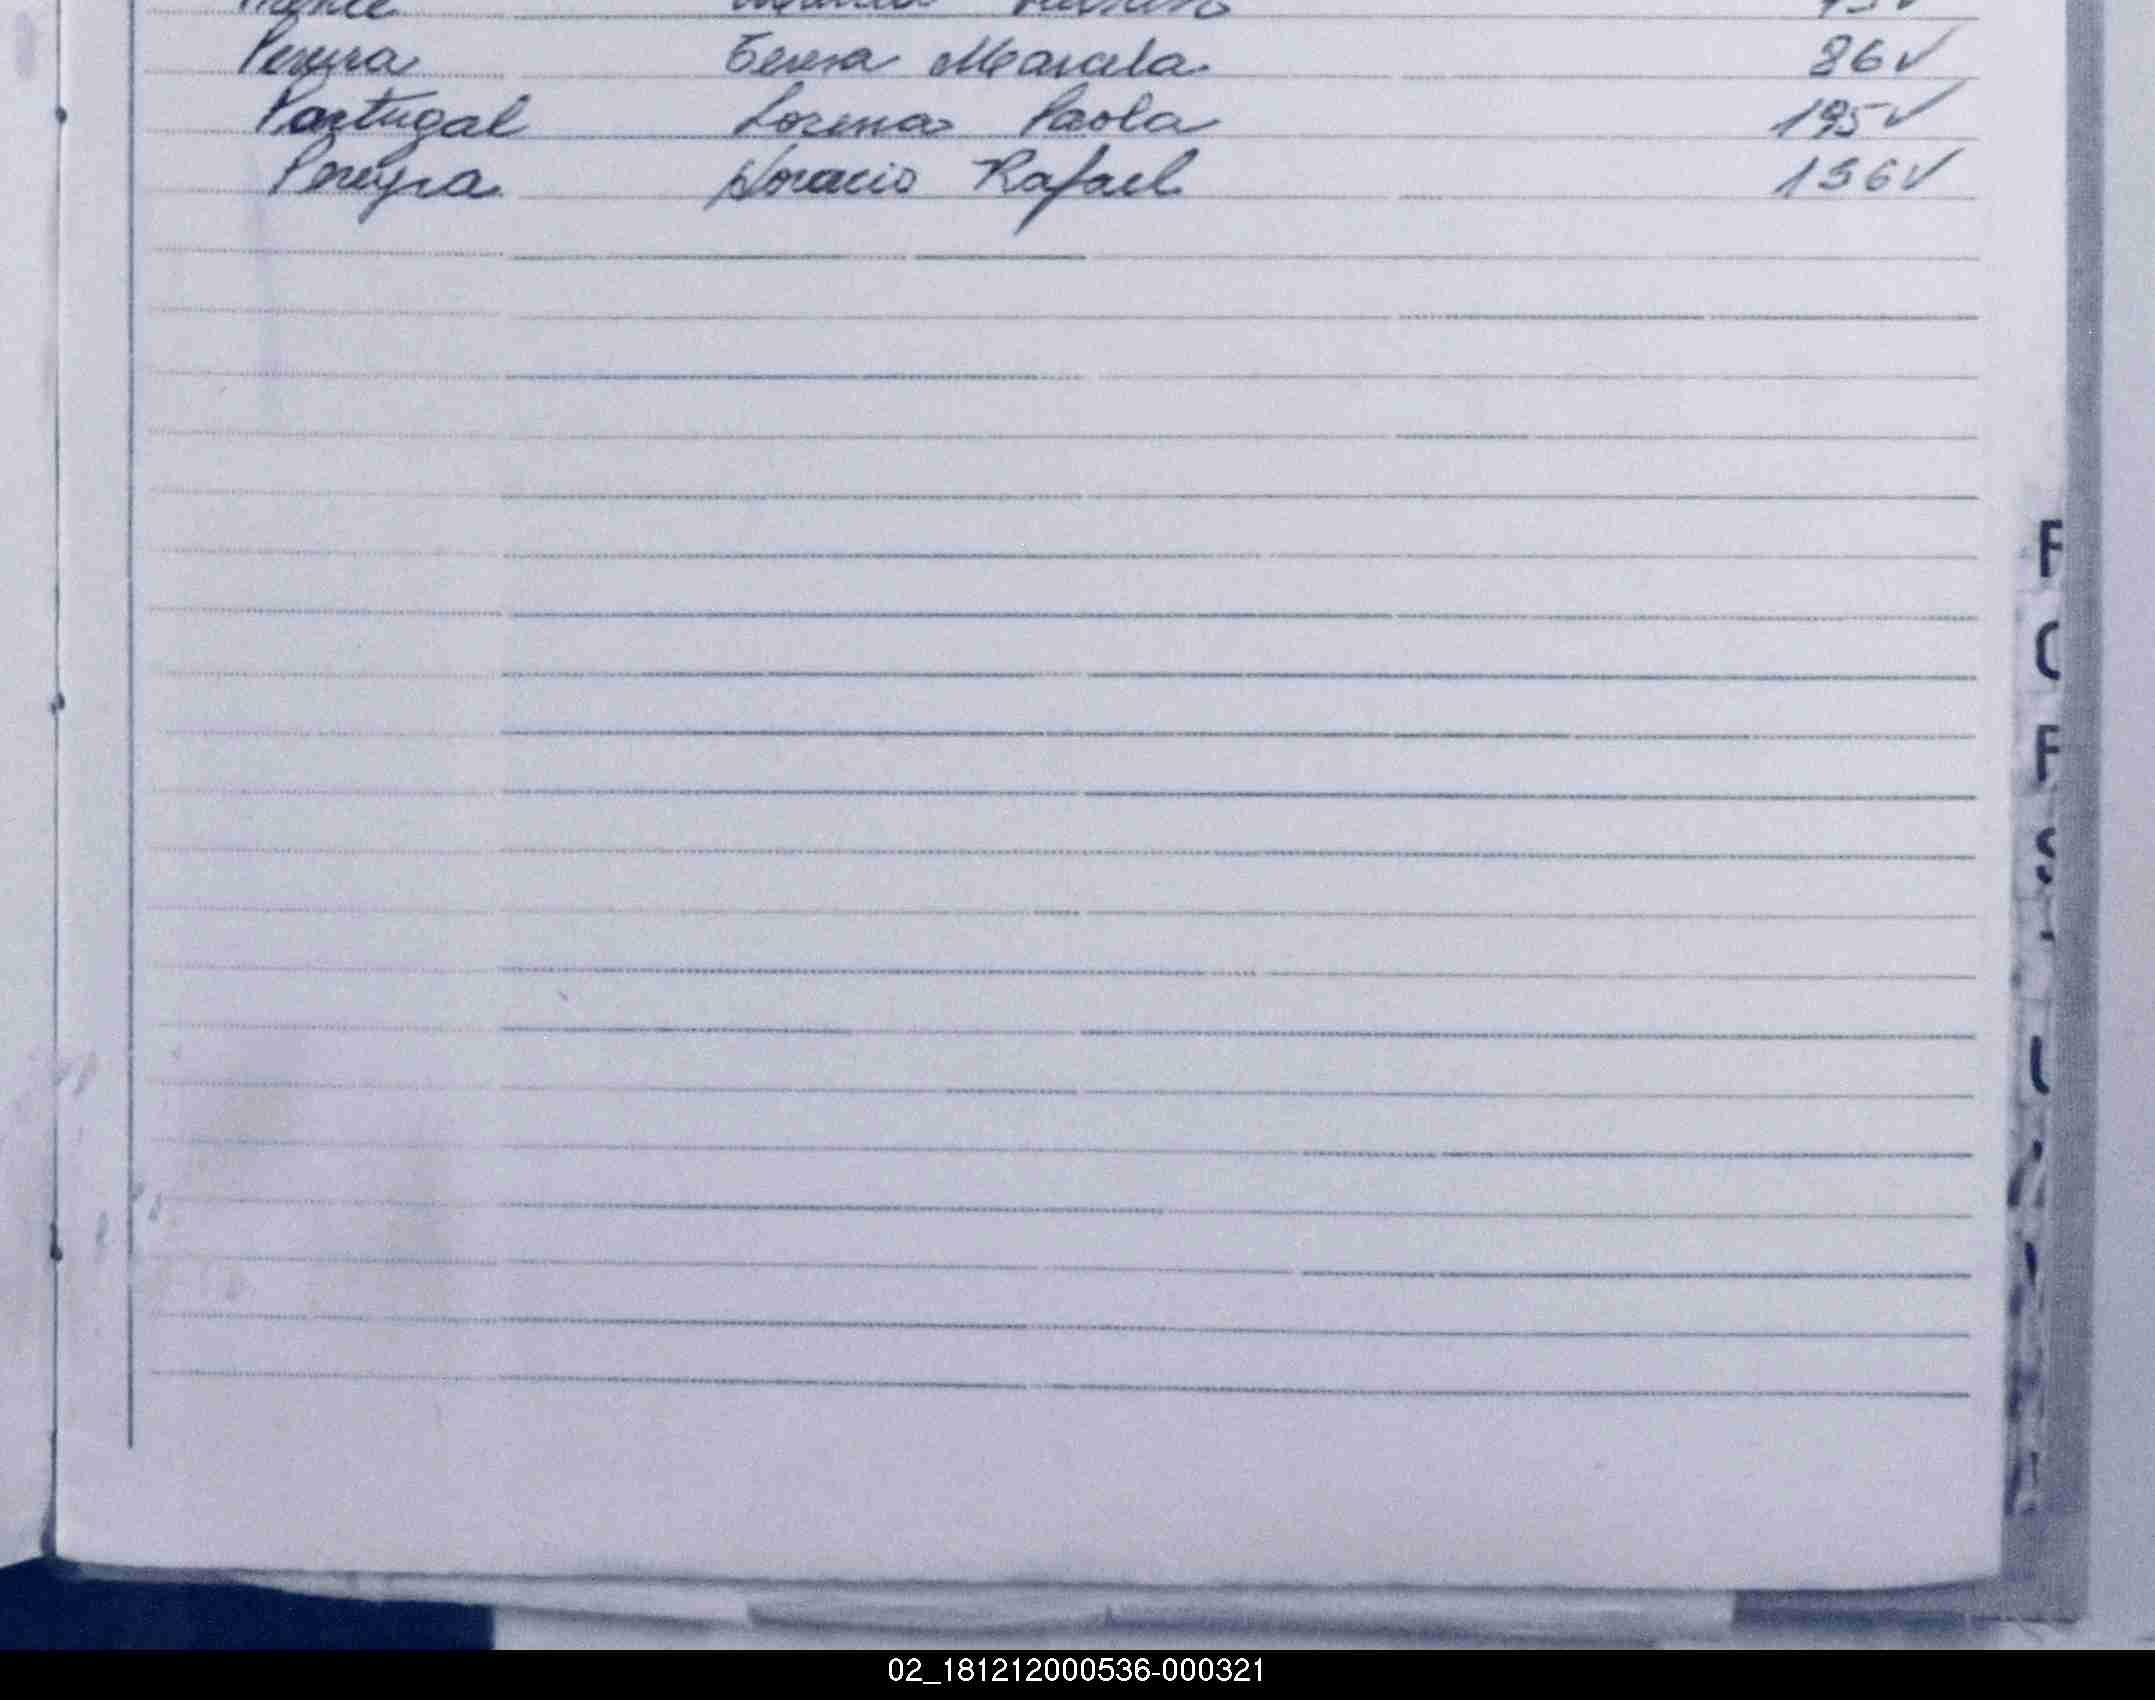 Pereira Teresa Marcela 86 ✓
Portugal Lorena Paola 195 ✓
Pereyra Horacio Rafael 196 ✓
02_181212000536-000321